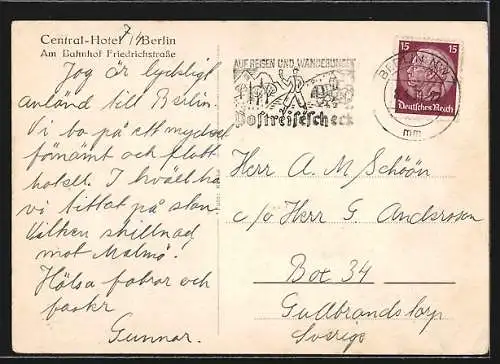 Central-Hotel 7/4 Berlin
Am Bahnhof Friedrichstraße
Jag är lyckligt
anländ till Berlin.
Vi bo på ett mycket
förnämt och flott
hotell. I kväll ha
vi tittat på stan
Vilken skillnad
mot Malmö!
Hälsa farbror och
Gunnar.
AUF REISEN UND WANDERUNGEN
Postreisescheck
BERLIN NW
mm
15 15
Deutsches Reich
Herr A M Schöön
c/o Herr G. Andersson
Box 34
Gullbrandstorp
Sverige